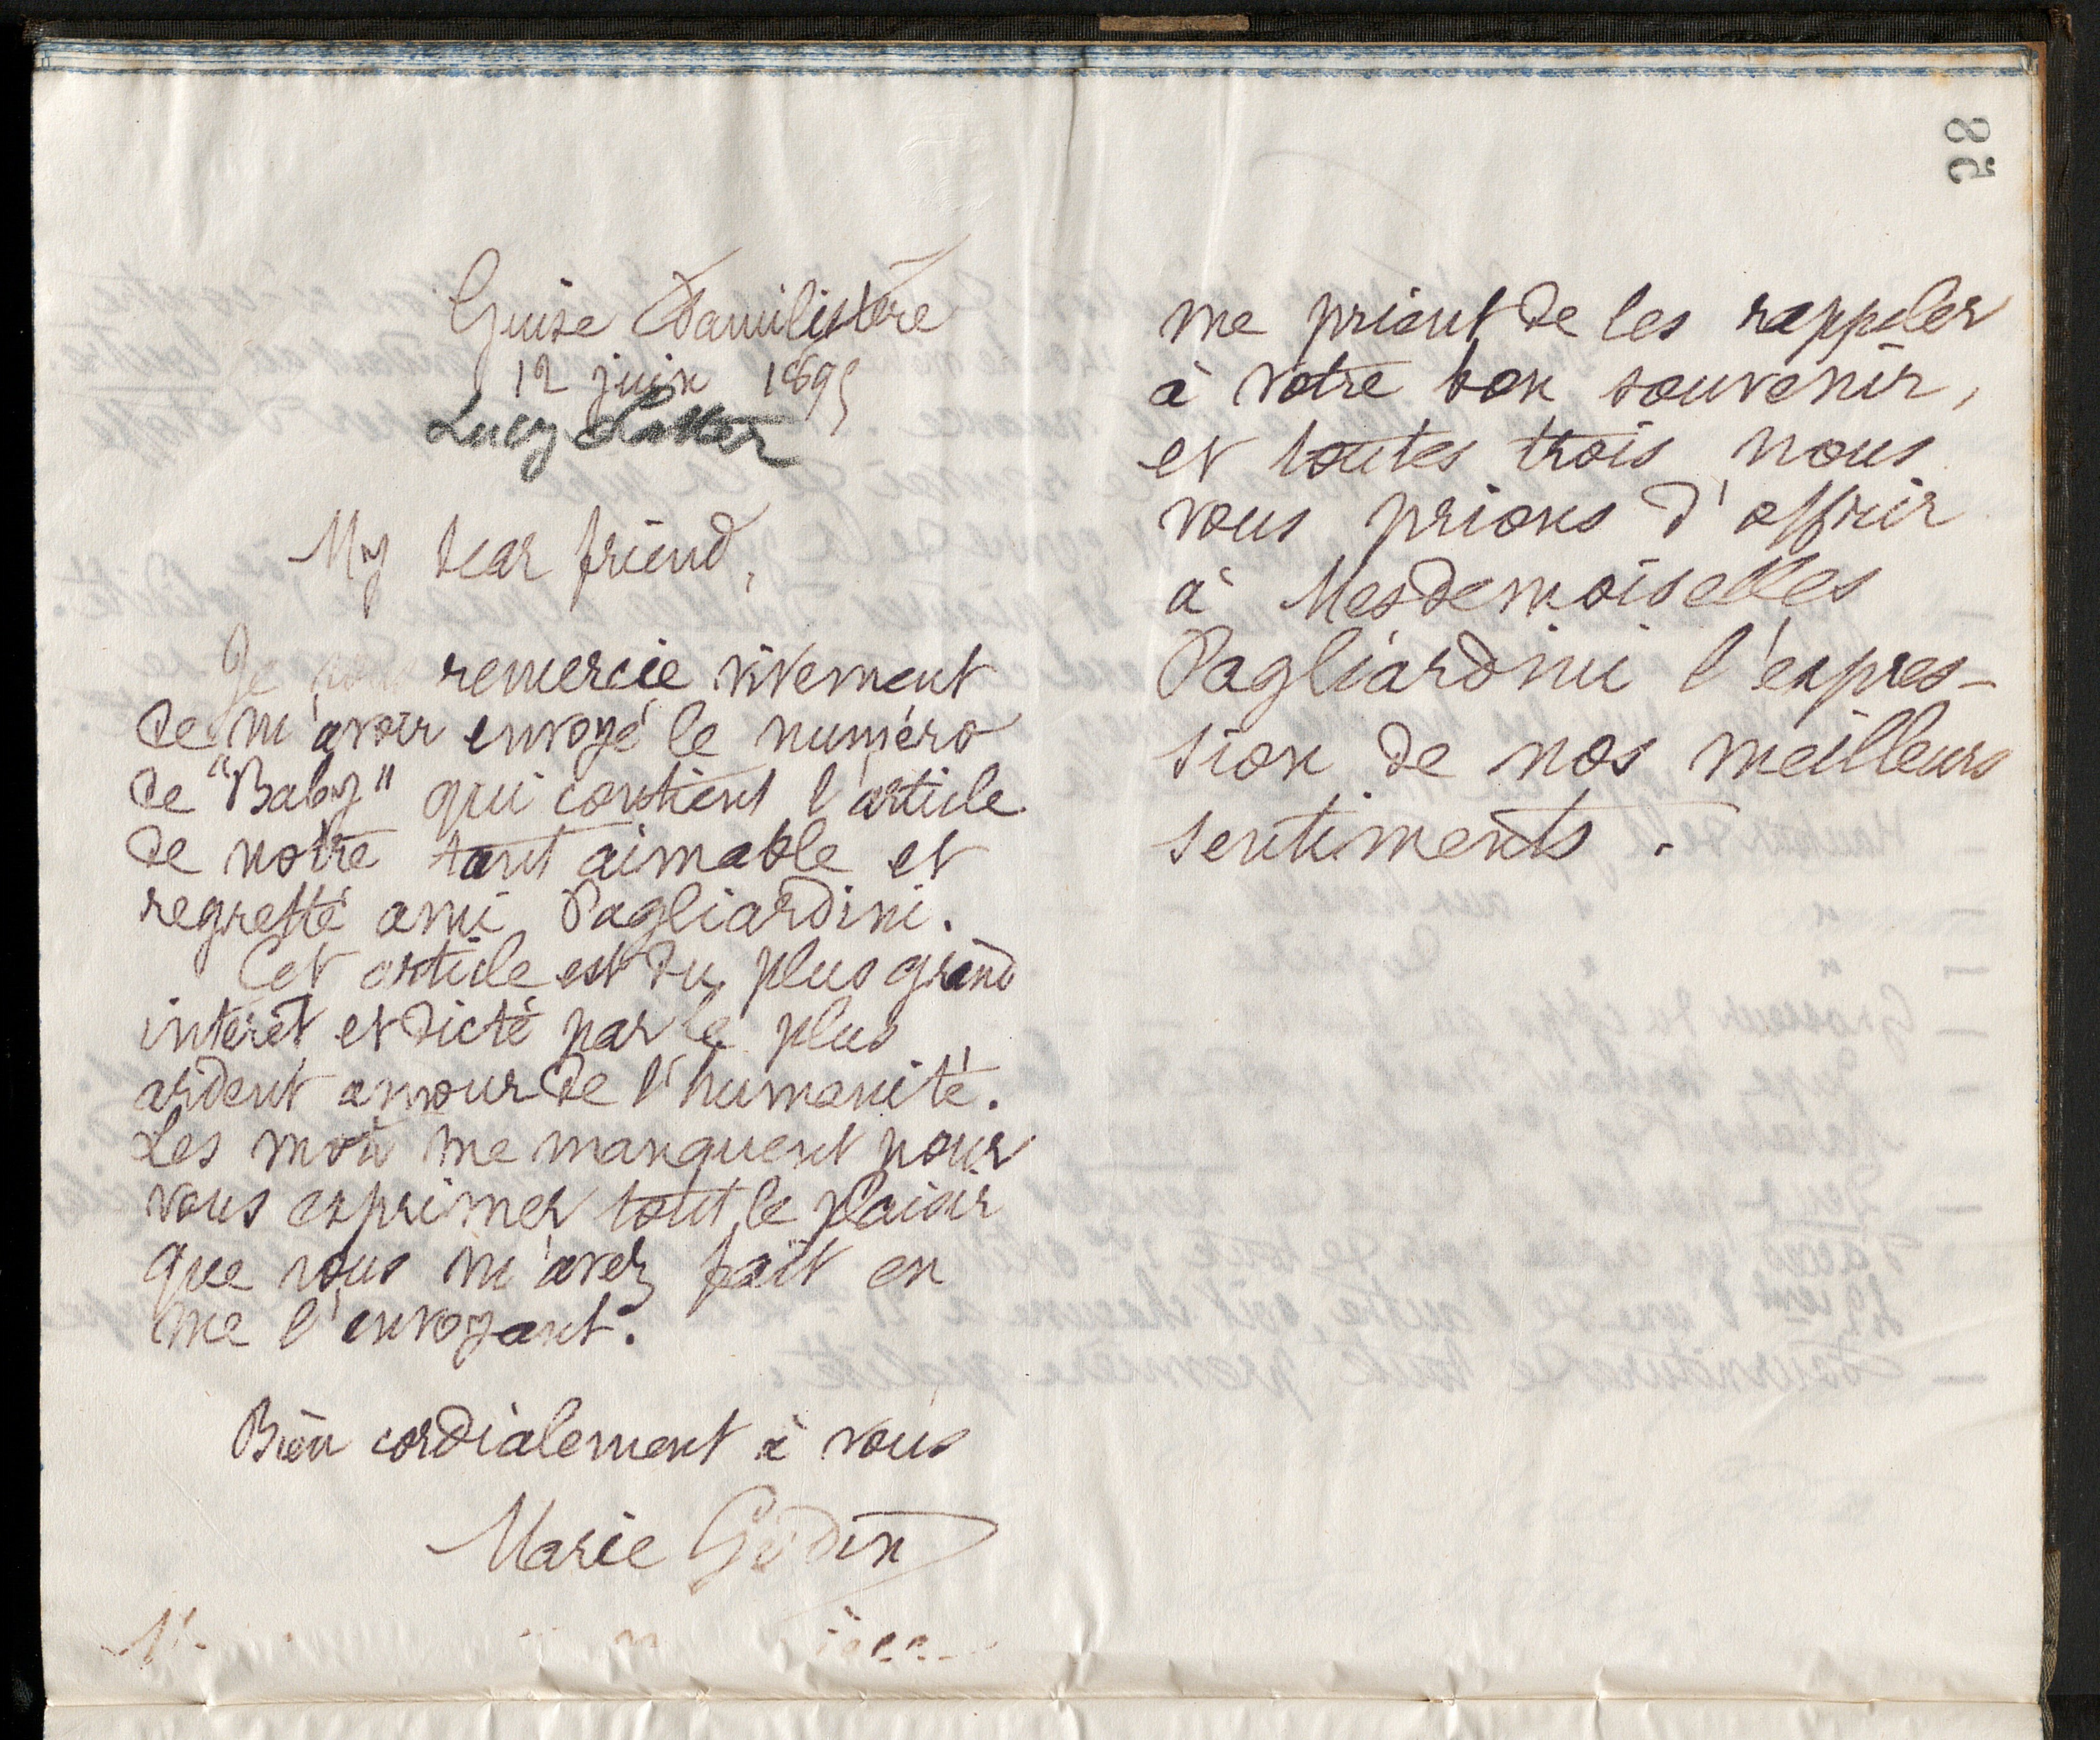 Guise Familistère
12 juin 1895
Lucy Latter
My dear friend,
Je vous remercie vivement
de m'avoir envoyé le numéro
de "Baby" qui contient l'article
de notre tant aimable et
regretté ami Pagliardini.
Cet article est du plus grand
intérêt et dicté par le plus
ardent amour de l'humanité.
Les mots me manquent pour
vous exprimer tout le plaisir
que vous m'avez fait en
me l'envoyant.
Bien cordialement à vous
Marie Godin
85
me priant de les rappeler
à votre bon souvenir,
et toutes trois nous
vous prions d'offrir
à Mesdemoiselles
Pagliardini l'expres-
sion de nos meilleurs
sentiments.